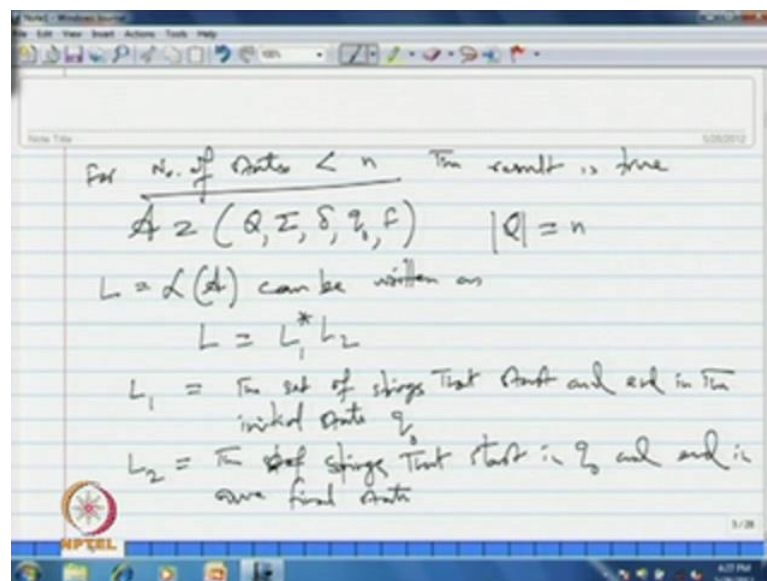 Note1 - Windows Journal
File Edit View Insert Actions Tools Help
Note Title
5/28/2012
For No. of states < n The result is true
A = (Q, Σ, δ, q₀, F) |Q| = n
L = L(A) can be written as
L = L₁* L₂
L₁ = The set of strings that start and end in the
initial state q₀
L₂ = The set of strings that start in q₀ and end in
some final state
NPTEL
3/28
4:27 PM